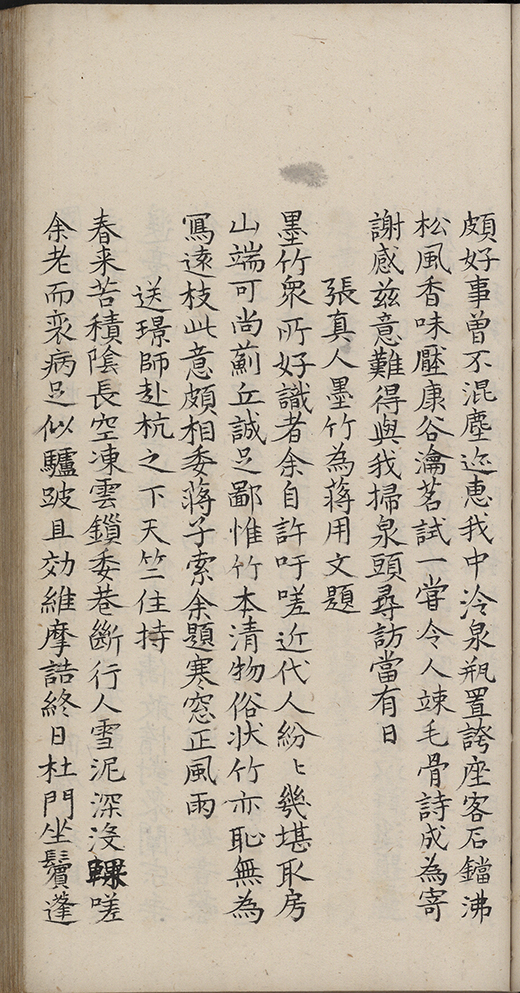 頗好事曾不混塵迹惠我中泠泉瓶置誇座客石鐺沸
松風香味壓康谷瀹茗試一嘗令人竦毛骨詩成為寄
謝感茲意難得與我掃泉頭尋訪當有日
張真人墨竹為蔣用文題
墨竹衆所好識者余自許吁嗟近代人紛〻幾堪取房
山端可尚薊丘誠足鄙惟竹本清物俗状竹亦恥無為
寫遠枝此意頗相委蔣子索余題寒窓正風雨
送璟師赴杭之下天竺住持
春来苦積陰長空凍雲鎖委巷斷行人雪泥深没輠嗟
余老而衰病足似驢跛且効維摩詰終日杜門坐鬢蓬